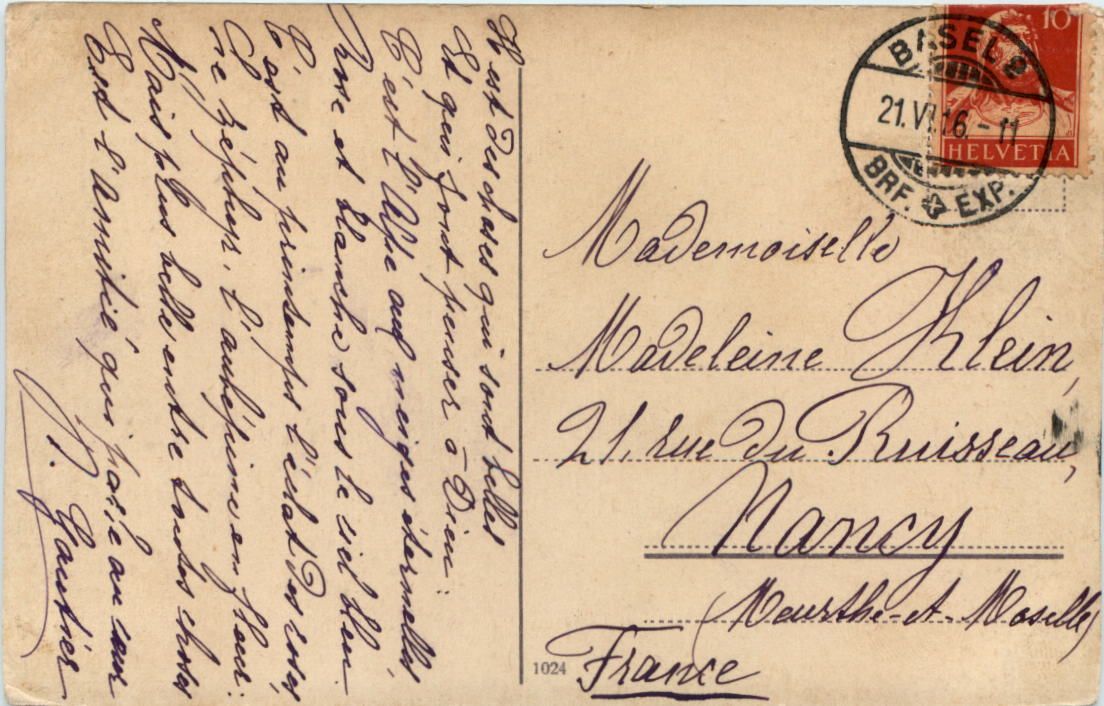 Il est des choses qui sont belles
Et qui font penser à Dieu:
C'est l'Alpe aux neiges éternelles
Rose et blanche sous le ciel bleu.
C'est au printemps l'éclat des roses,
Le zéphyr, l'aubépine en fleur:
Mais plus belle entre toutes choses
Est l'amitié qui parle au cœur
Gautier
10
HELVETIA
BASEL 2
21.VI.16.-11
BRF. EXP.
Mademoiselle
Madeleine Klein,
21, rue du Ruisseau,
Nancy
(Meurthe-et-Moselle)
France
1024